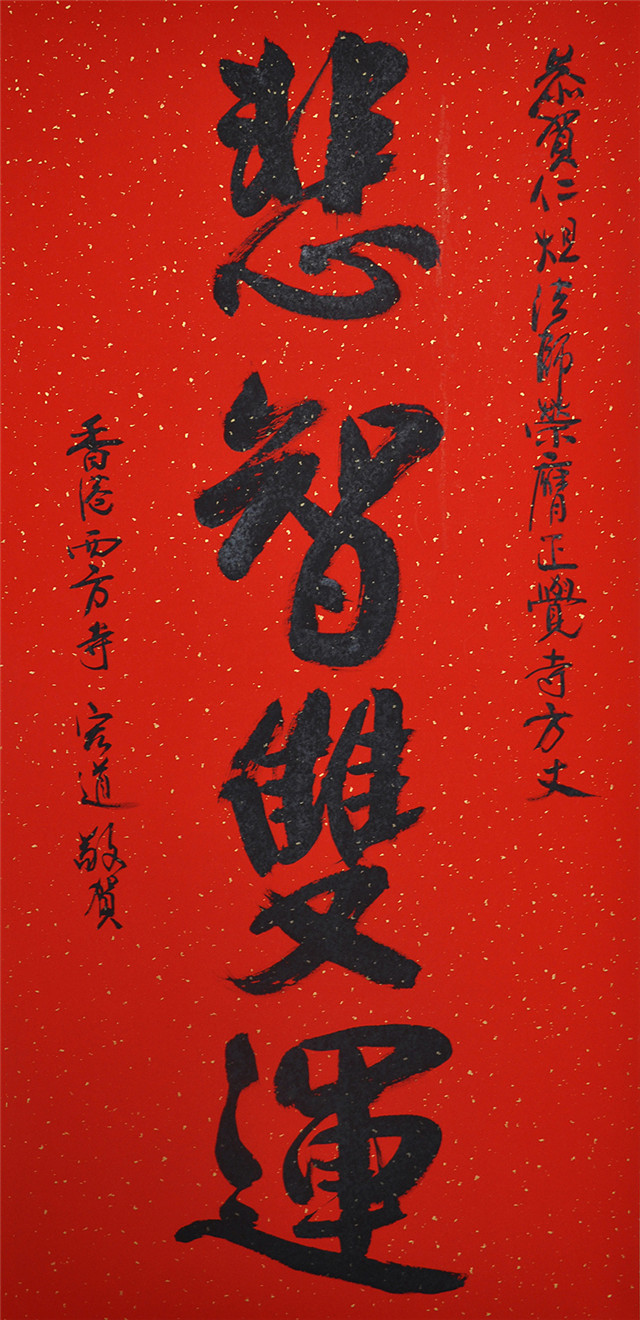 恭賀仁炟法師榮膺正覺寺方丈
悲智雙運
香港西方寺 宏道 敬賀